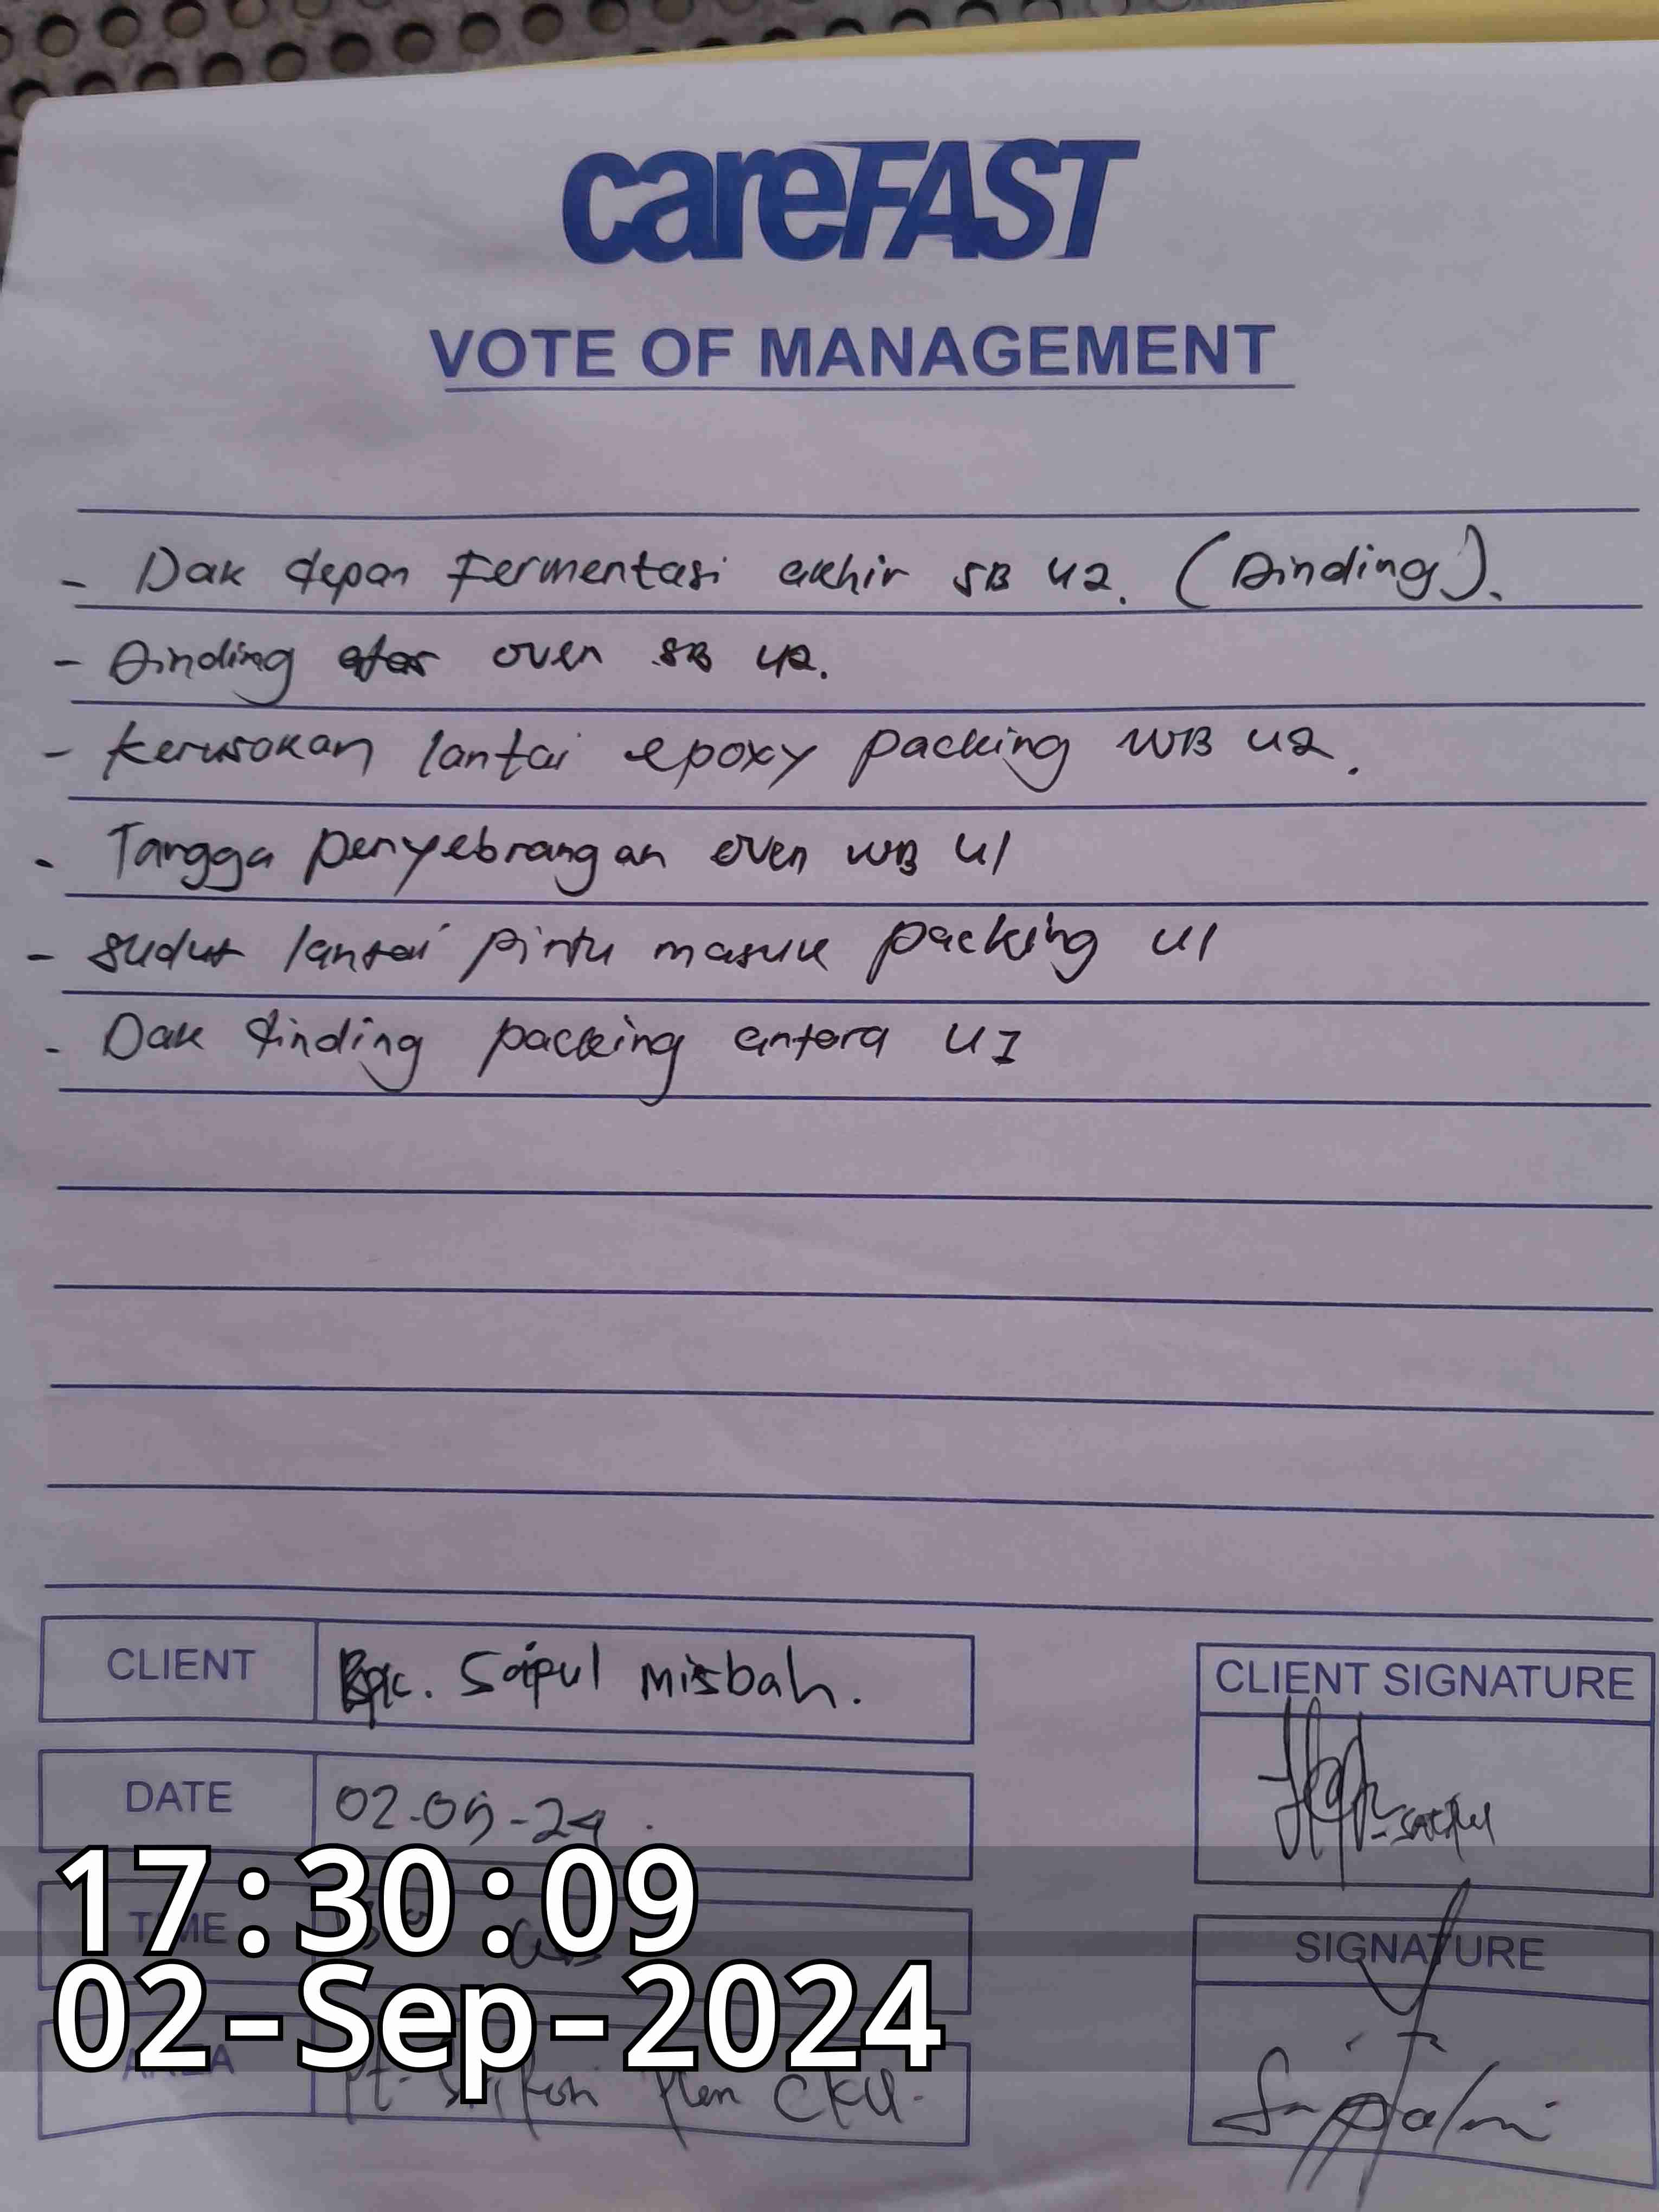 careFAST
VOTE OF MANAGEMENT
- Dak depan Fermentasi akhir SB U2. (Dinding).
- Dinding atas oven SB U2.
- Kerusakan lantai epoxy packing WB U2.
- Tangga penyebrangan oven WB U1
- sudut lantai pintu masuk packing U1
- Dak dinding packing antara U1
CLIENT Bpk. Saipul Misbah.
CLIENT SIGNATURE
DATE 02-09-24.
17:30:09
TIME
SIGNATURE
02-Sep-2024
AREA Pt. CKU.